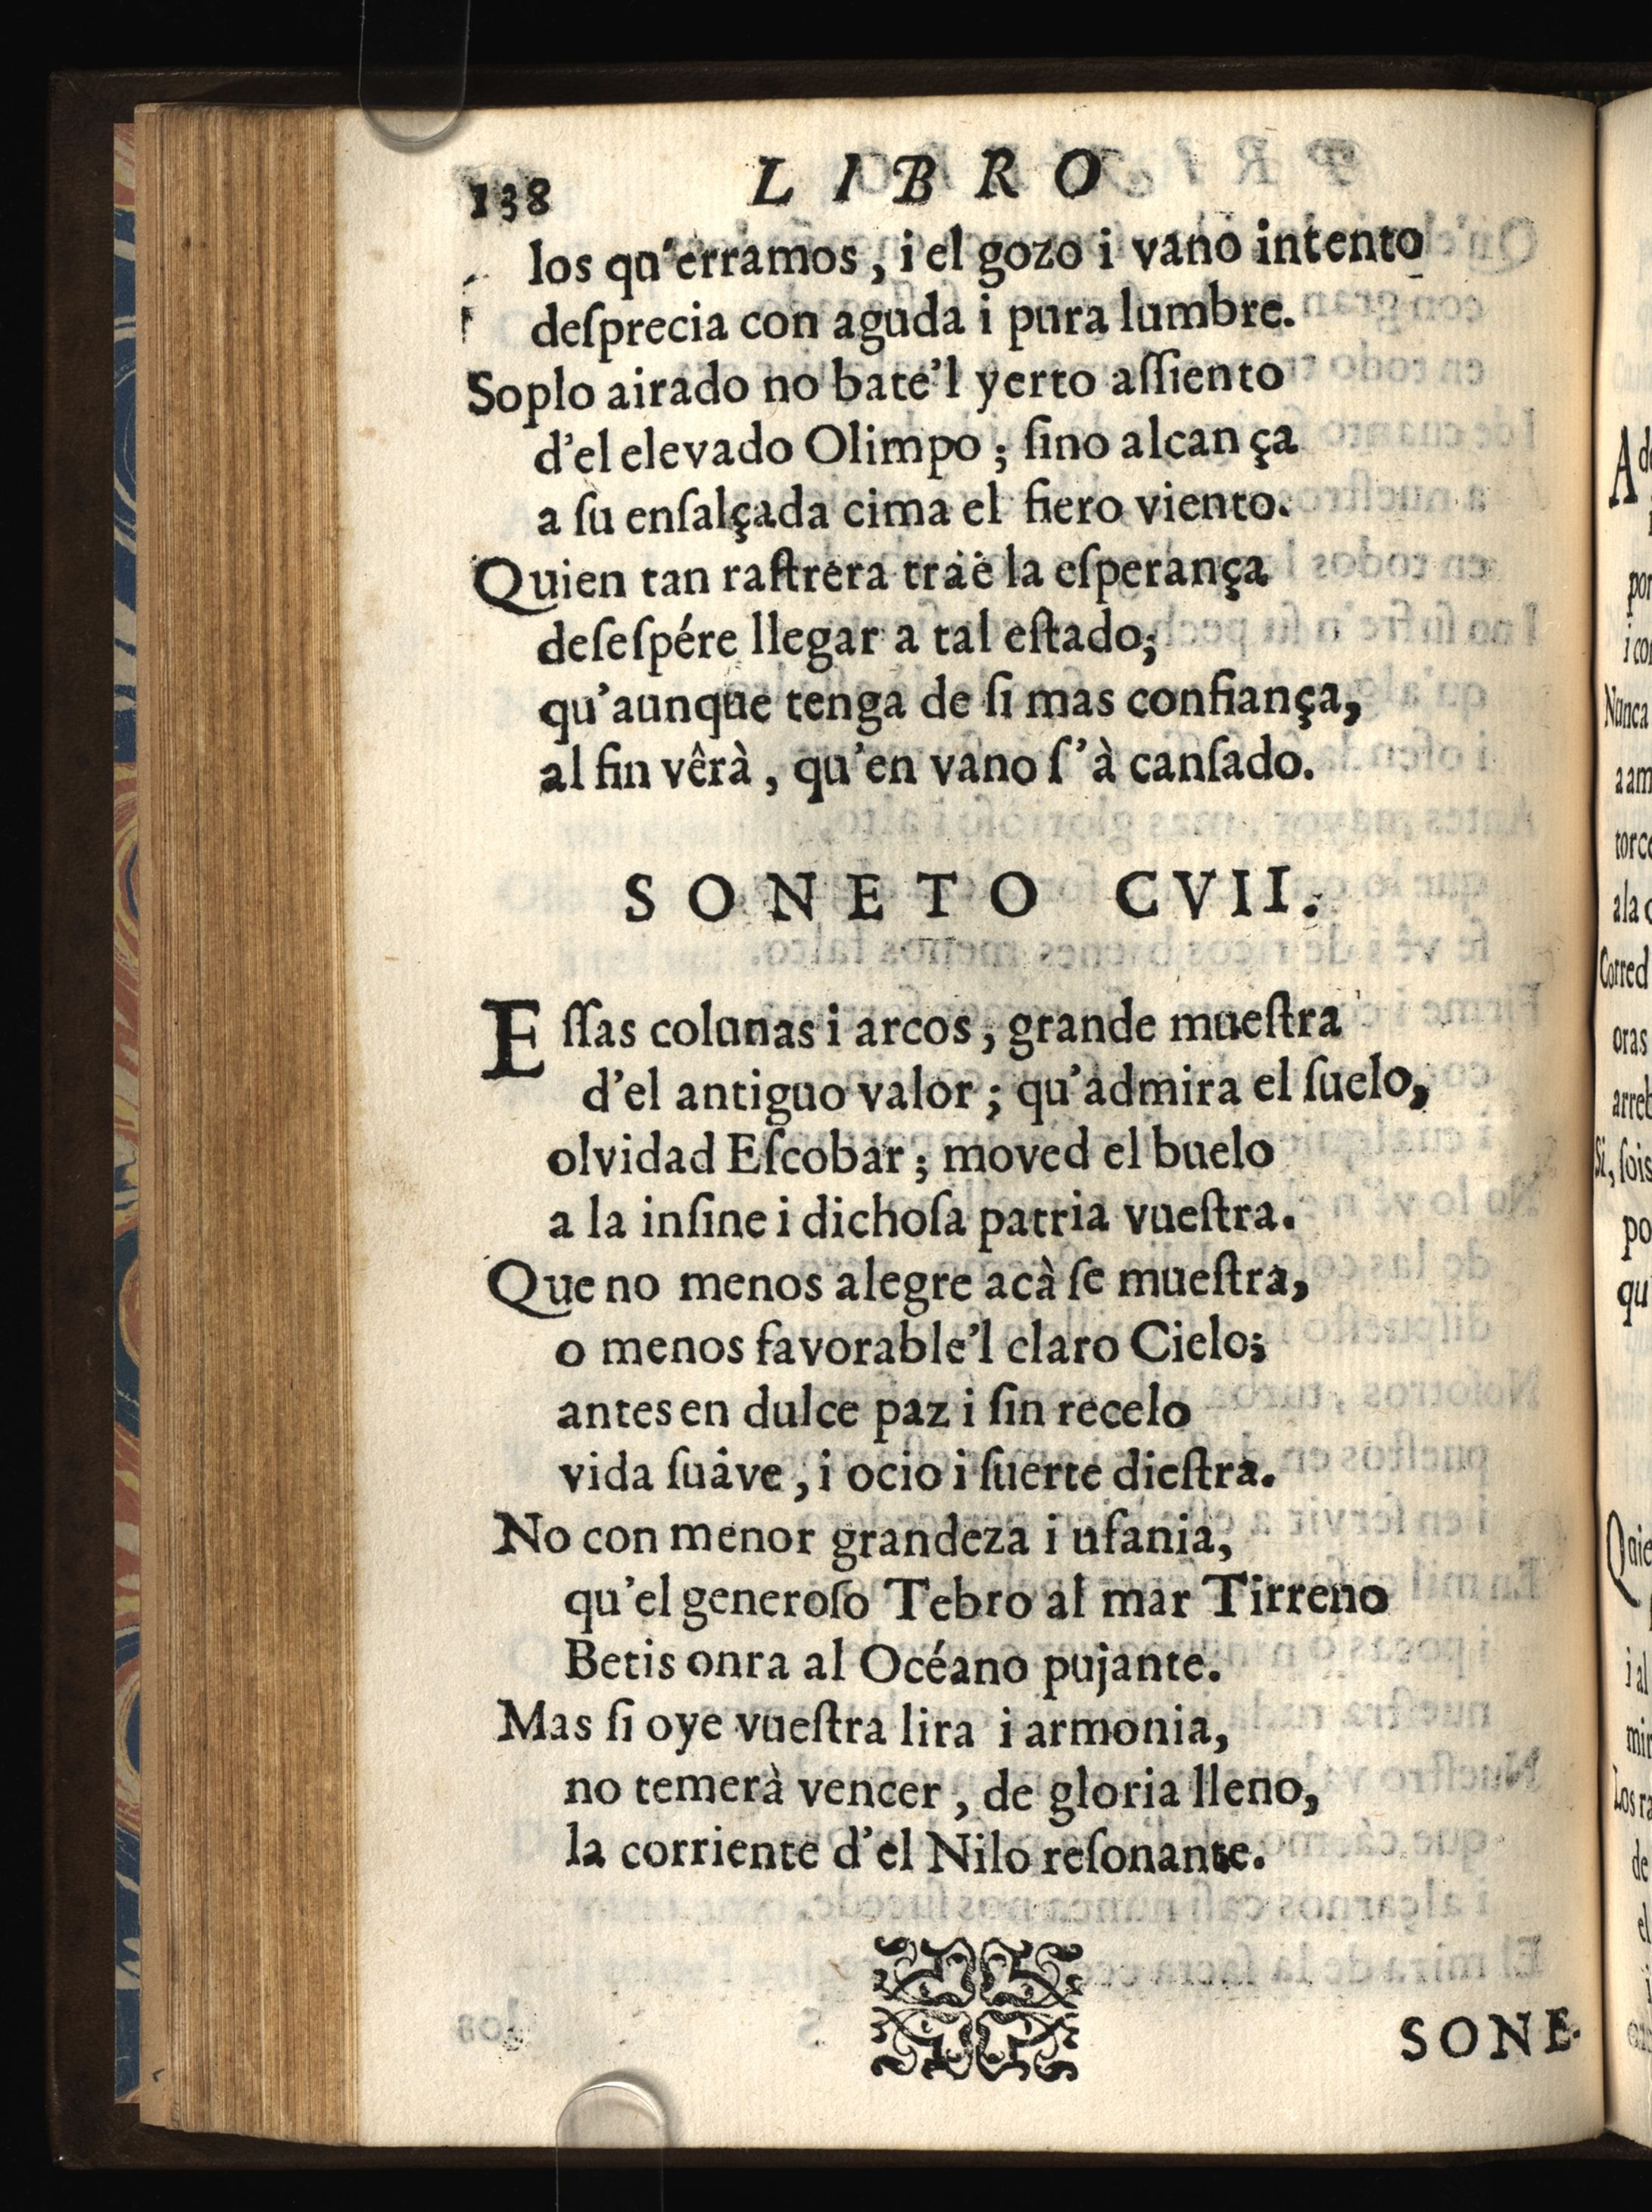 138 LIBRO
los qu'erramos, i el gozo i vano intento
deſprecia con aguda i pura lumbre.
Soplo airado no bate'l yerto aſſiento
d'el elevado Olimpo; ſino alcança
a ſu enſalçada cima el fiero viento.
Quien tan raſtrera träe la eſperança
deſeſpére llegar a tal eſtado;
qu'aunque tenga de ſi mas confiança,
al fin vêrà, qu'en vano ſ'à canſado.
SONETO CVII.
Eſſas colunas i arcos, grande mueſtra
d'el antiguo valor; qu'admira el ſuelo,
olvidad Eſcobar; moved el buelo
a la inſine i dichoſa patria vueſtra.
Que no menos alegre acà ſe mueſtra,
o menos favorable'l claro Cielo;
antes en dulce paz i ſin recelo
vida ſuâve, i ocio i ſuerte dieſtra.
No con menor grandeza i ufania,
qu'el generoſo Tebro al mar Tirreno
Betis onra al Océano pujante.
Mas ſi oye vueſtra lira i armonia,
no temerà vencer, de gloria lleno,
la corriente d'el Nilo reſonante.
SONE-